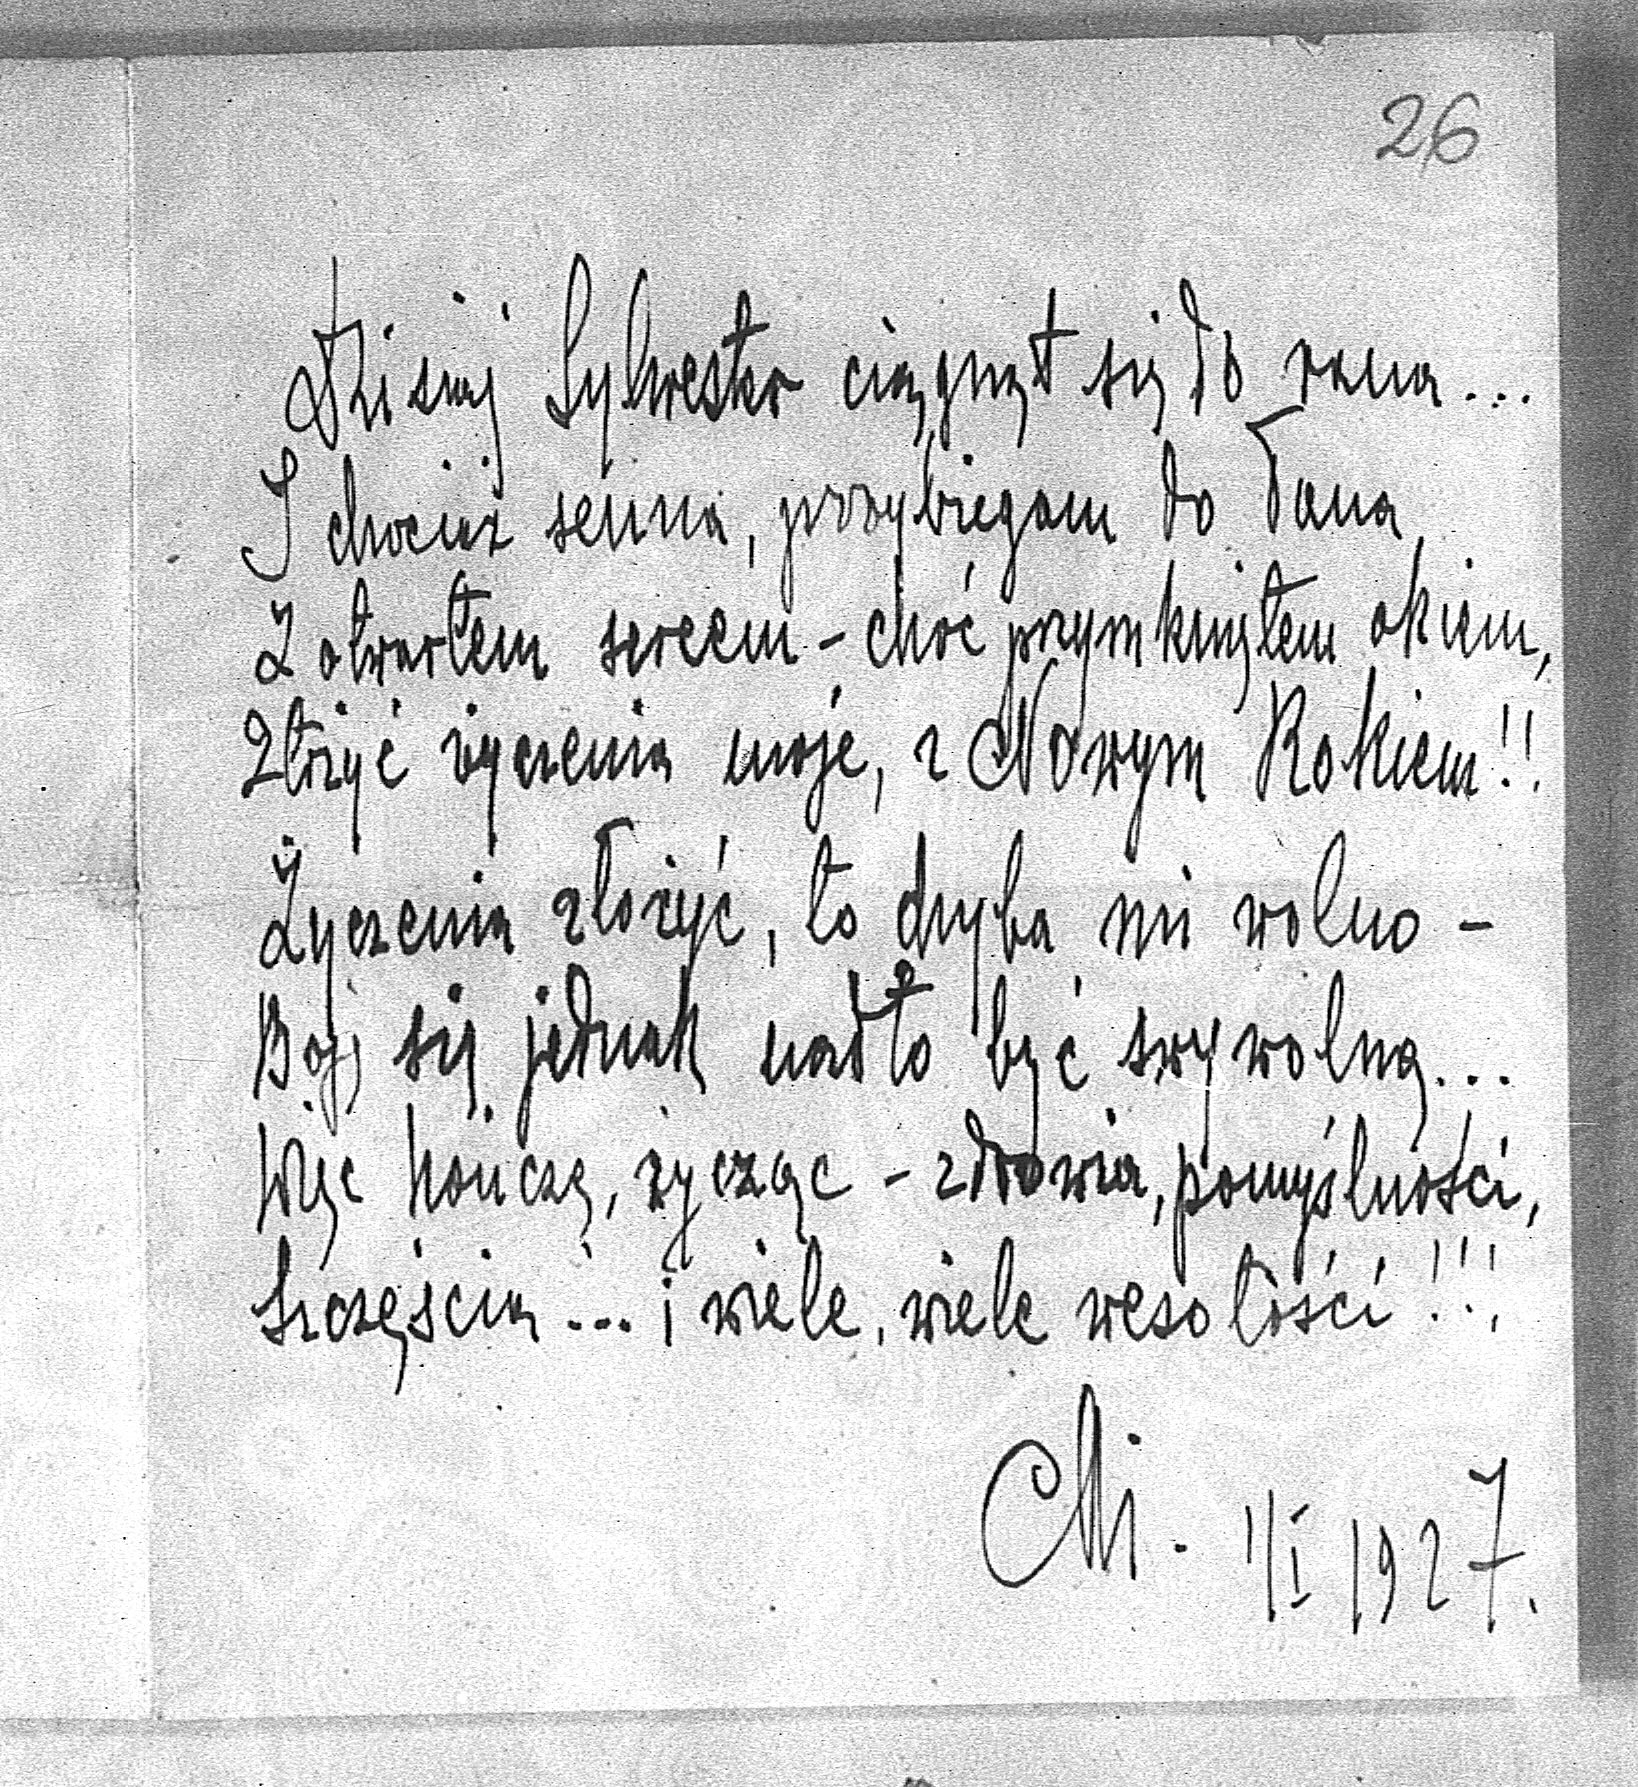 26
Dzisiaj Sylwester ciągnął się do rana...
I chociaż senna, przybiegam do Pana
Z otwartem sercem - choć przymkniętem okiem,
Złożyć życzenia moje, z Nowym Rokiem!!
Życzenia złożyć, to chyba mi wolno -
Boję się jednak nadto być swywolną...
Więc kończę, życząc - zdrowia, pomyślności,
Szczęścia... i wiele, wiele wesołości!!!
Mi. 1/I 1927.